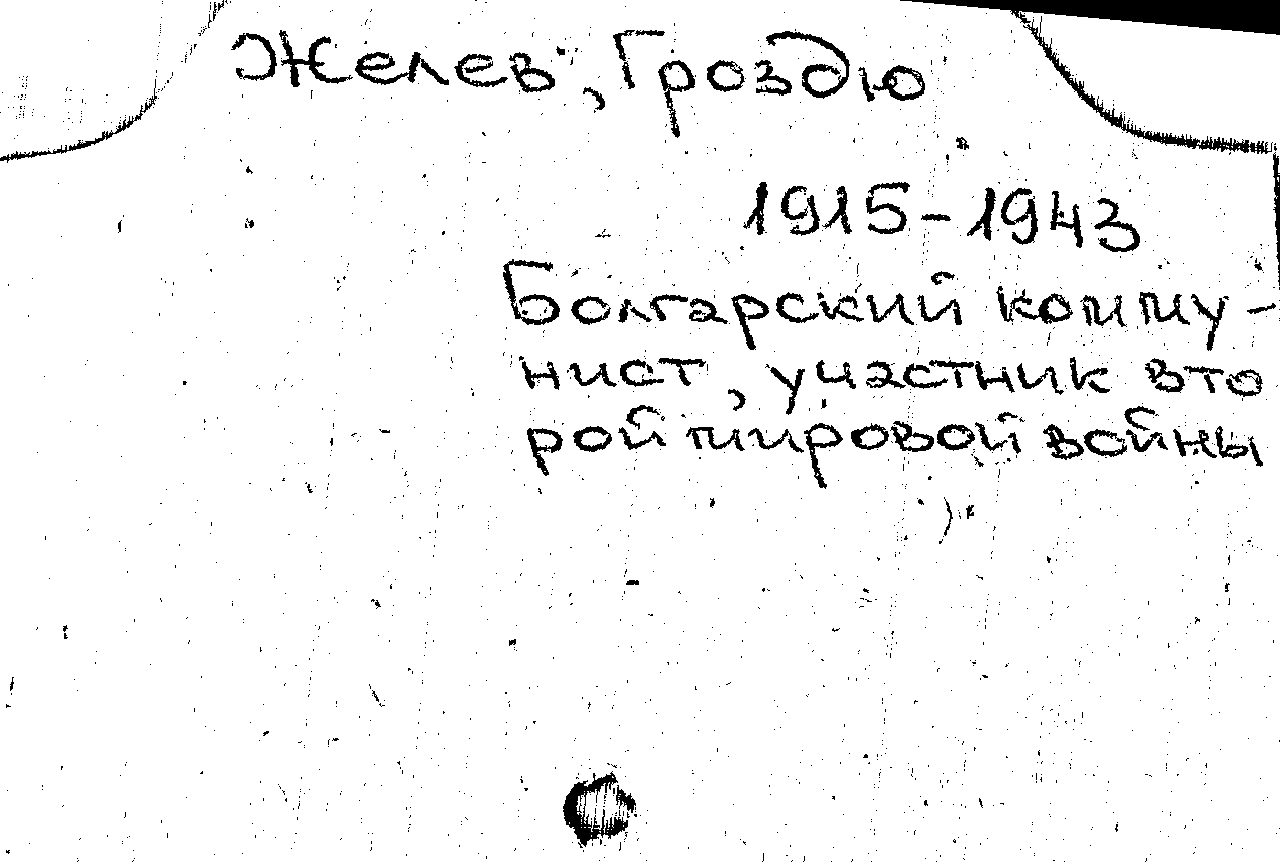 Желев, Гроздю
1915-1943
Болгарский комму-
нист, участник вто
рой мировой войны